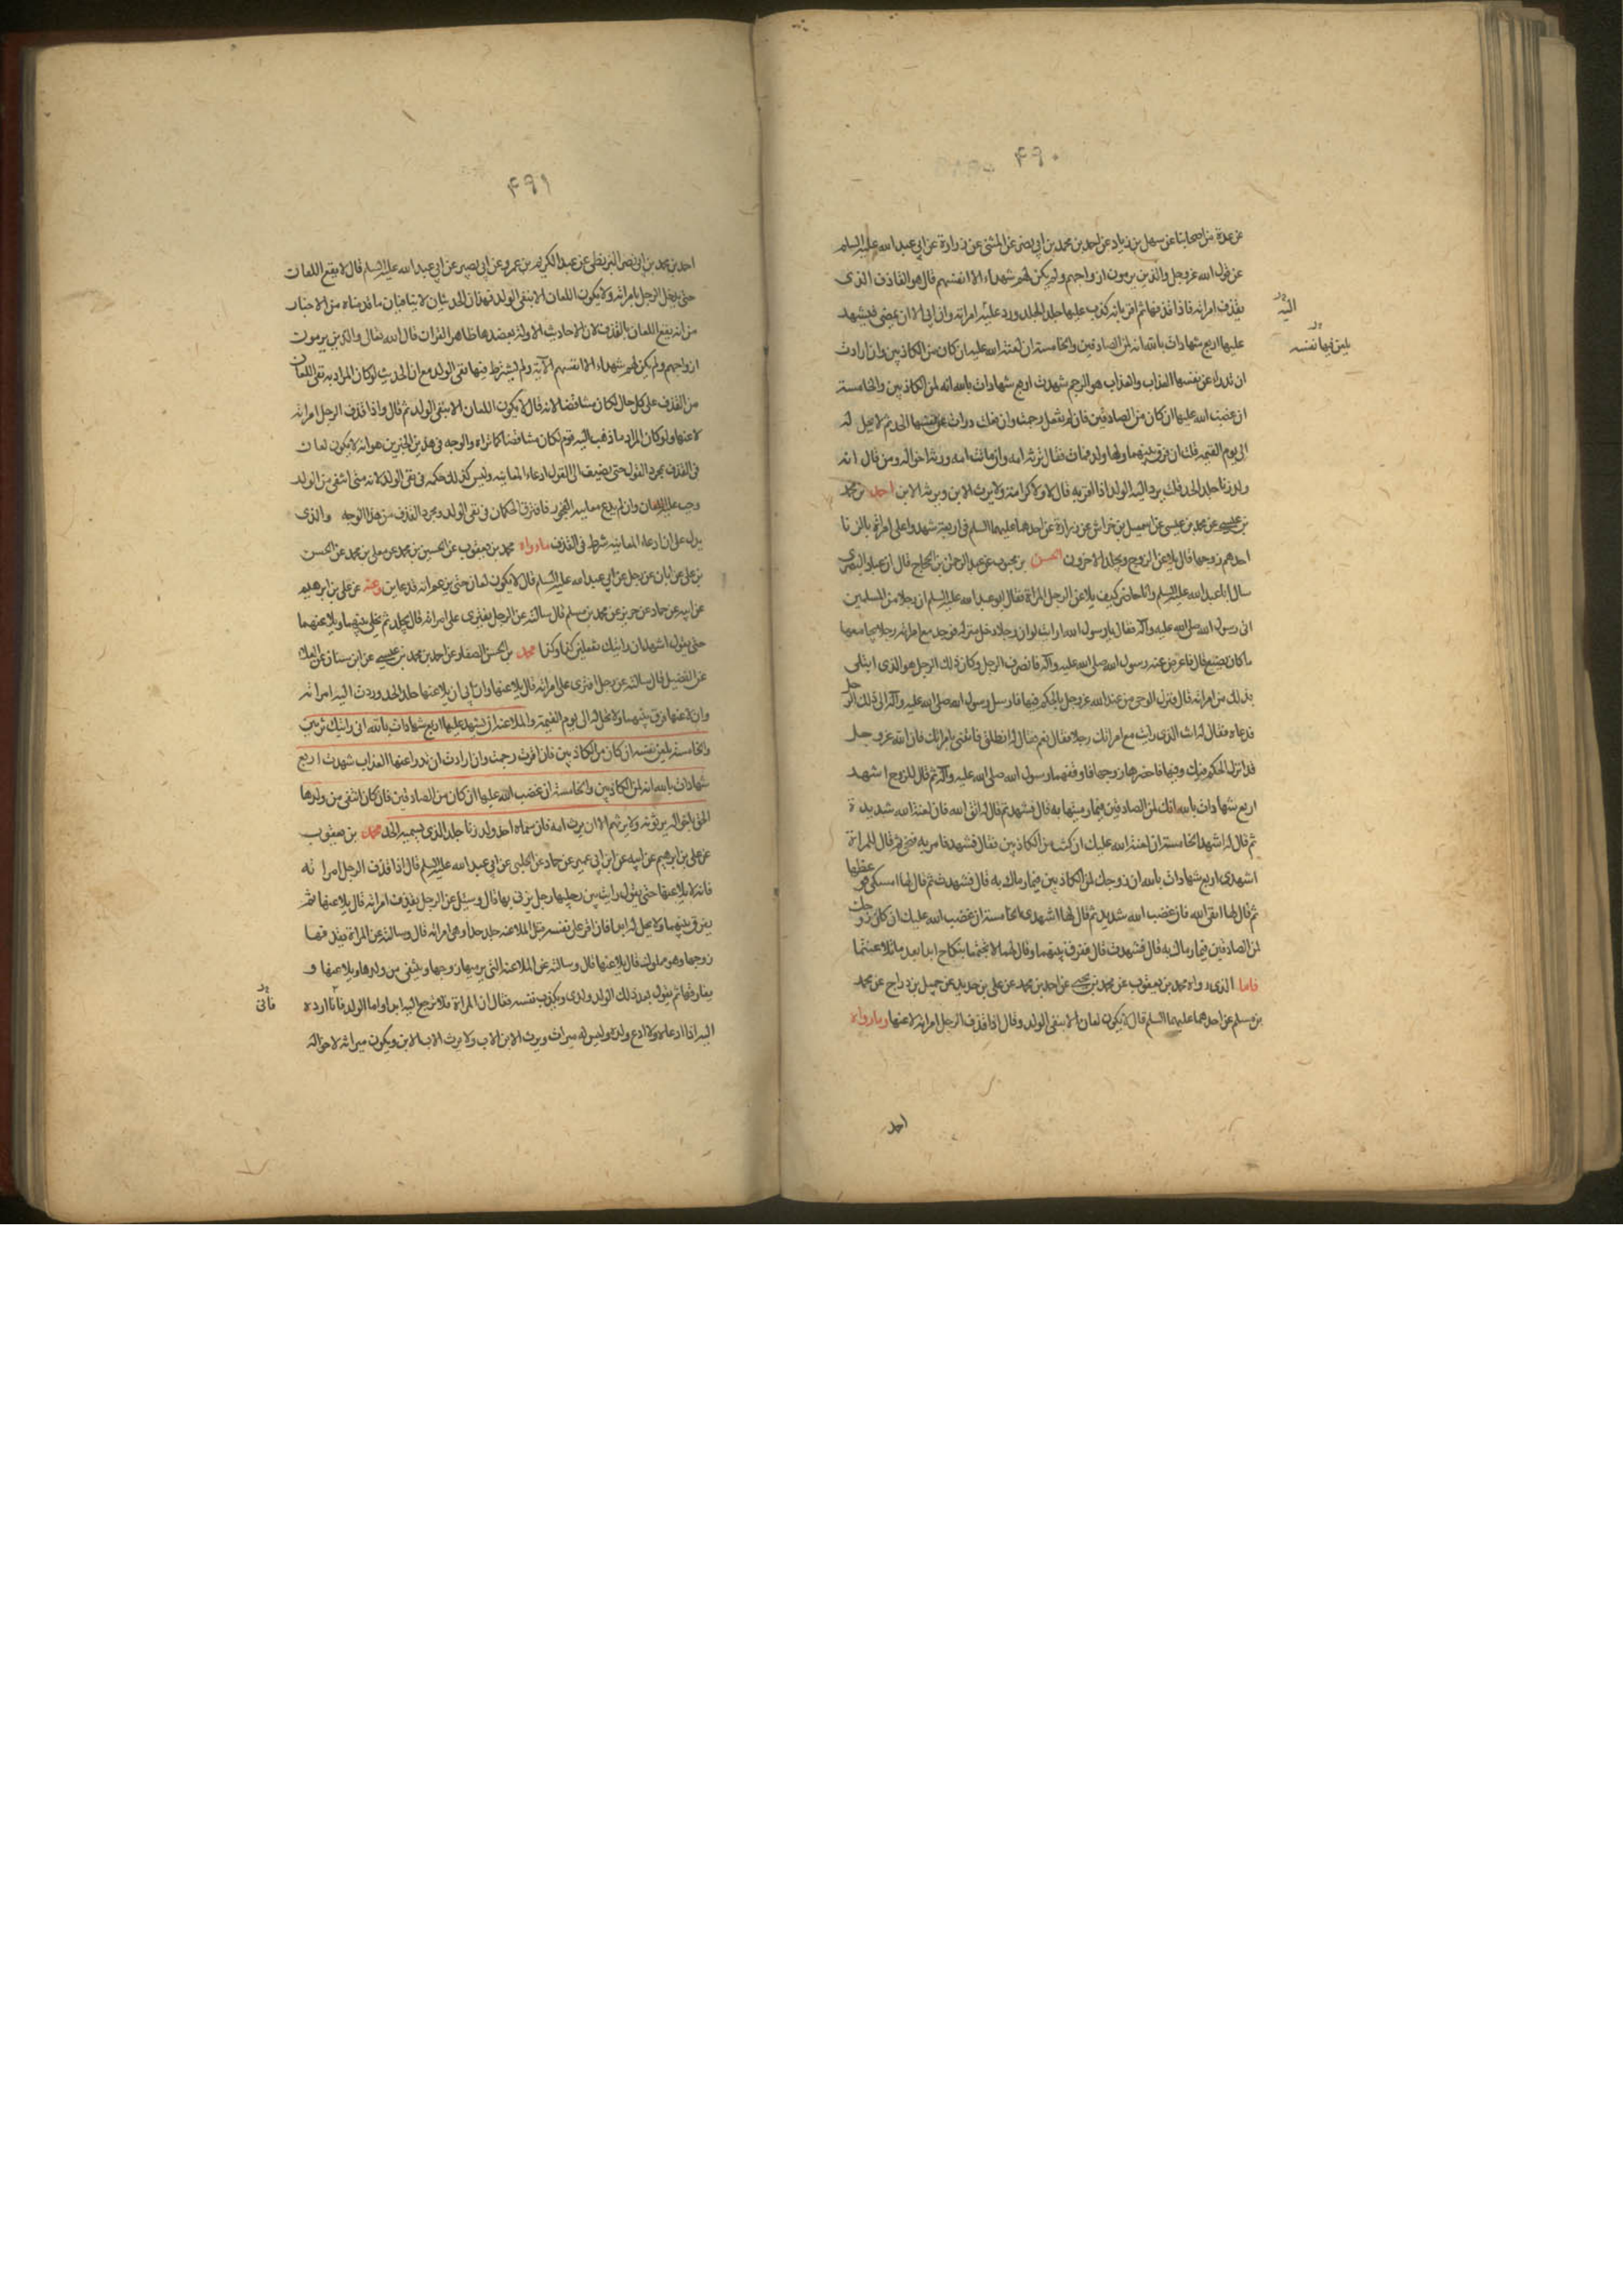 ٤٩٠
عن عدة من اصحابنا عن سهل بن زياد عن احمد بن محمد بن ابي نصر عن المثنى عن زرارة عن ابي عبد الله عليه السلم
عن قول الله عز وجل والذين يرمون ازواجهم ولم يكن لهم شهداء الا انفسهم قال هو القاذف الذى
يقذف امراته فاذا قذفها ثم اقر بانه كذب عليها جلد الحد ورد عليه امراته وان ابى الا ان يمضى فيشهد
اليه
عليها اربع شهادات بالله انه لمن الصادقين والخامسة ان لعنة الله عليه ان كان من الكاذبين وان ارادت
يلعن فيها نفسه
ان تدرا عن نفسها العذاب والعذاب هو الرجم شهدت اربع شهادات بالله انه لمن الكاذبين والخامسة
ان غضب الله عليها ان كان من الصادقين فان لم تفعل رجمت وان فعلت درات عن نفسها الحد ثم لا تحل له
الى يوم القيمة قلت ان فرق بينهما ولها ولد فمات فقال ترثه امه وان ماتت امه ورثه اخواله ومن قال انه
ولد زنا جلد الحد قلت يرد اليه الولد اذا اقر به قال لا ولا كرامة ولا يرث الابن ويرثه الابن احمد بن محمد
بن عيسى عن محمد بن عيسى عن اسمعيل بن خراش عن زرارة عن احدهما عليهما السلم فى اربعة شهدوا على امراة بالزنا
احدهم زوجها قال يلاعن الزوج ويجلد الاخرون الحسن بن محبوب عن عبد الرحمن بن الحجاج قال ان عباد البصرى
سال ابا عبد الله عليه السلم وانا حاضر كيف يلاعن الرجل المراة فقال ابو عبد الله عليه السلم ان رجلا من المسلمين
اتى رسول الله صلى الله عليه وآله فقال يا رسول الله ارايت لو ان رجلا دخل منزله فوجد مع امراته رجلا يجامعها
ما كان يصنع قال فاعرض عنه رسول الله صلى الله عليه وآله فانصرف الرجل وكان ذلك الرجل هو الذى ابتلى
بذلك من امراته قال فنزل الوحى من عند الله عز وجل بالحكم فيها فارسل رسول الله صلى الله عليه وآله الى ذلك الرجل
فدعاه فقال له انت الذى رايت مع امراتك رجلا فقال نعم فقال له انطلق فاتنى بامراتك فان الله عز وجل
قد انزل الحكم فيك وفيها فاحضرها زوجها فاوقفهما رسول الله صلى الله عليه وآله ثم قال للزوج اشهد
اربع شهادات بالله انك لمن الصادقين فيما رميتها به قال فشهد ثم قال له اتق الله فان لعنة الله شديدة
ثم قال له اشهد الخامسة ان لعنة الله عليك ان كنت من الكاذبين فقال فشهد فامر به فنحى ثم قال للمراة
اشهدى اربع شهادات بالله ان زوجك لمن الكاذبين فيما رماك به قال فشهدت ثم قال لها امسكى فوعظها
ثم قال لها اتقى الله فان غضب الله شديد ثم قال لها اشهدى الخامسة ان غضب الله عليك ان كان زوجك
لمن الصادقين فيما رماك به قال فشهدت قال ففرق بينهما وقال لهما لا تجتمعا بنكاح ابدا بعد ما تلاعنتما
فاما الذى رواه محمد بن يعقوب عن محمد بن يحيى عن احمد بن محمد عن على بن حديد عن جميل بن دراج عن محمد
بن مسلم عن احدهما عليهما السلم قال لا يكون لعان الا بنفى الولد وقال اذا قذف الرجل امراته لاعنها وما رواه
احمد
٤٩١
احمد بن محمد بن ابى نصر البزنطى عن عبد الكريم بن عمرو عن ابى بصير عن ابى عبد الله عليه السلم قال لا يقع اللعان
حتى يدخل الرجل بامراته ولا يكون اللعان الا بنفى الولد فهذان الحديثان لا ينافيان ما قدمناه من الاخبار
من انه يقع اللعان بالقذف لان الاحاديث الاولة يعضدها ظاهر القران قال الله تعالى والذين يرمون
ازواجهم ولم يكن لهم شهداء الا انفسهم الآية ولم يشترط فيها نفى الولد مع ان الحديث لو كان المراد به نفى اللعان
من القذف على كل حال لكان متناقضا لانه قال لا يكون اللعان الا بنفى الولد ثم قال واذا قذف الرجل امراته
لاعنها ولو كان المراد ما ذهب اليه قوم لكان متناقضا كما تراه والوجه فى هذين الخبرين هو انه لا يكون لعان
فى القذف بمجرد القول حتى يضيف الى القول ادعاء المعاينه وليس كذلك حكمه فى نفى الولد لانه متى انتفى من الولد
وجب عليه اللعان وان لم يدع معاينة الفجور فافترق الحكمان فى نفى الولد ومجرد القذف من هذا الوجه والذى
يدل على ان ادعاء المعاينه شرط فى القذف ما رواه محمد بن يعقوب عن الحسين بن محمد عن معلى بن محمد عن الحسن
بن على عن ابان عن رجل عن ابي عبد الله عليه السلم قال لا يكون لعان حتى يزعم انه قد عاين وعنه عن على بن ابرهيم
عن ابيه عن حماد عن حريز عن محمد بن مسلم قال سالته عن الرجل يفترى على امراته قال يجلد ثم يخلى بينهما ولا يلاعنها
حتى يقول اشهد ان رايتك تفعلين كذا وكذا محمد بن الحسن الصفار عن احمد بن محمد بن عيسى عن ابن سنان عن العلاء
عن الفضيل قال سالته عن رجل افترى على امراته قال يلاعنها وان ابى ان يلاعنها جلد الحد وردت اليه امراته
وان لاعنها فرق بينهما ولا تحل له الى يوم القيمة والملاعنة ان يشهد عليها اربع شهادات بالله انى رايتك تزنين
والخامسة يلعن نفسه ان كان من الكاذبين فان اقرت رجمت وان ارادت ان تدرا عنها العذاب شهدت اربع
شهادات بالله انه لمن الكاذبين والخامسة ان غضب الله عليها ان كان من الصادقين فان كان انتفى من ولدها
الحق باخواله يرثونه ولا يرثهم الا ان يرث امه فان سماه احد ولد زنا جلد الذى يسميه الحد محمد بن يعقوب
عن على بن ابرهيم عن ابيه عن ابن ابي عمير عن حماد عن الحلبى عن ابي عبد الله عليه السلم قال اذا قذف الرجل امراته
فانه لا يلاعنها حتى يقول رايت بين رجليها رجل يزنى بها قال وسئل عن الرجل يقذف امراته قال يلاعنها ثم
يفرق بينهما ولا تحل له ابدا فان اقر على نفسه قبل الملاعنه جلد حدا وهى امراته قال وسالته عن المراة يقذفها
زوجها وهو مملوك قال يلاعنها قال وسالته عن الملاعنة التى يرميها زوجها وينتفى من ولدها ويلاعنها و
يفارقها ثم يقول بعد ذلك الولد ولدى ويكذب نفسه فقال ان المراة فلا ترجع اليه ابدا واما الولد فانا ارده
فانى
اليه اذا ادعاه ولا ادع ولده وليس له ميراث ويرث الابن الاب ولا يرث الاب الابن ويكون ميراثه لاخواله